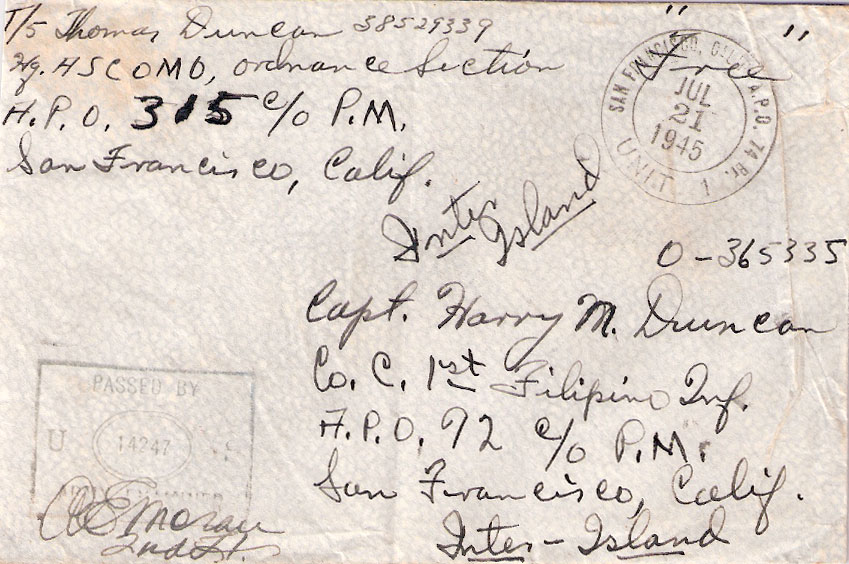 T/5 Thomas Duncan 38529339
Hq. ASCOMO, Ordnance Section
A.P.O. 315 c/o P.M.
San Francisco, Calif.
"Free"
SAN FRANCISCO, CALIF. A.P.O. 74 Br.
JUL
21
1945
UNIT 1
Inter
Island
O-365335
Capt. Harry M. Duncan
Co. C. 1st Filipino Inf.
A.P.O. 72 c/o P.M.
San Francisco, Calif.
Inter-Island
PASSED BY
U 14247 S
ARMY EXAMINER
2nd Lt.